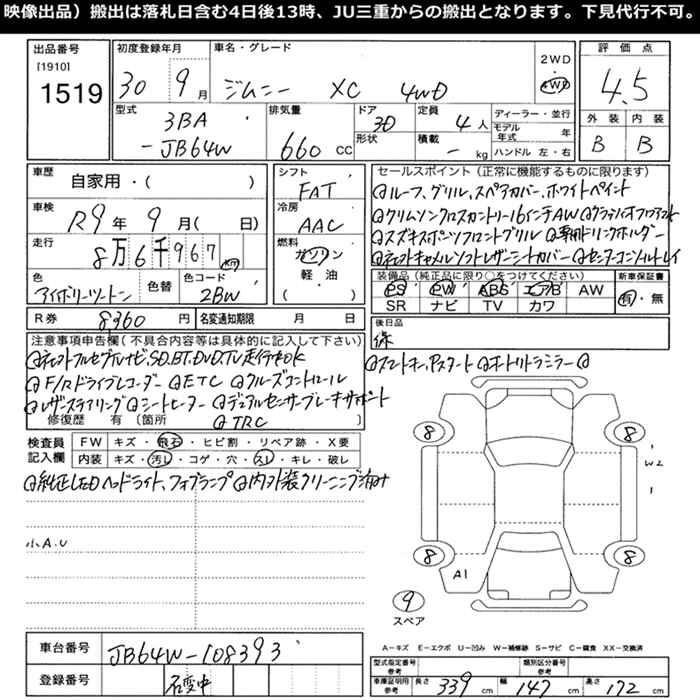 映像出品）搬出は落札日含む4日後13時、JU三重からの搬出となります。下見代行不可。
出品番号 [1910] 1519
初度登録年月 30 9月
車名・グレード ジムニー XC 4WD
2WD 4WD
評価点 4.5
外装 内装
B B
型式 3BA-JB64W
排気量 660 cc
ドア形状 3D
定員 4人
積載 - kg
ディーラー・並行
モデル年式 年
ハンドル 左・右
車歴 自家用・( )
車検 R9年 9月( 日)
走行 8万6千967 km
色 アイボリーツートン 色替 色コード 2BW
シフト FAT
冷房 AAC
燃料 ガソリン 軽油 ( )
セールスポイント（正常に機能するものに限ります）
ルーフ、グリル、スペアカバー、ホワイトペイント
クリムソンクロスカントリー16インチAW
スズキスポーツフロントグリル 専用ドリンクホルダー
キャメルソフトレザーシートカバー センターコンソールトレイ
装備品（純正品に限り○をつけてください）
PS PW ABS エアB AW
SR ナビ TV カワ
新車保証書 有・無
R券 8360円 名変通知期限 月 日
後日品
保
注意事項申告欄（不具合内容等は具体的に記入して下さい）
社外フルセグナビ、SD.BT.DVD.TV走行時OK
F/Rドライブレコーダー ETC クルーズコントロール
レザーステアリング シートヒーター デュアルセンサーブレーキサポート
修復歴 有 〔箇所 TRC 〕
スマートキー、Pスタート オートリトラミラー
検査員記入欄
FW キズ・飛石・ヒビ割・リペア跡・X要
内装 キズ・汚れ・コゲ・穴・スレ・キレ・破レ
純正LEDヘッドライト、フォグランプ 内外装クリーニング済み
小A.U
8 8
W2
1
8 8
A1
9
スペア
A－キズ E－エクボ U－凹み W－補修跡 S－サビ C－腐食 XX－交換済
車台番号 JB64W-108393
登録番号 名変中
型式指定番号 参考
類別区分番号 参考
車庫証明用参考 長さ 339 cm 幅 147 cm 高さ 172 cm